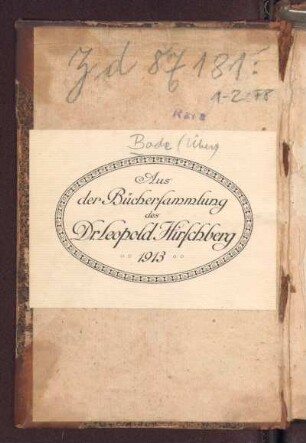 Zd 87181:
6
1-2<78
Rara
Bode (Übers
Aus
der Büchersammlung
des
Dr. Leopold Hirschberg
1913